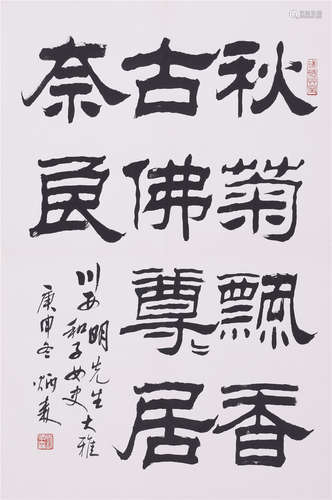 秋菊飘香
古佛尊居
奈良
川西明先生
和子女史大雅
庚申冬炳森